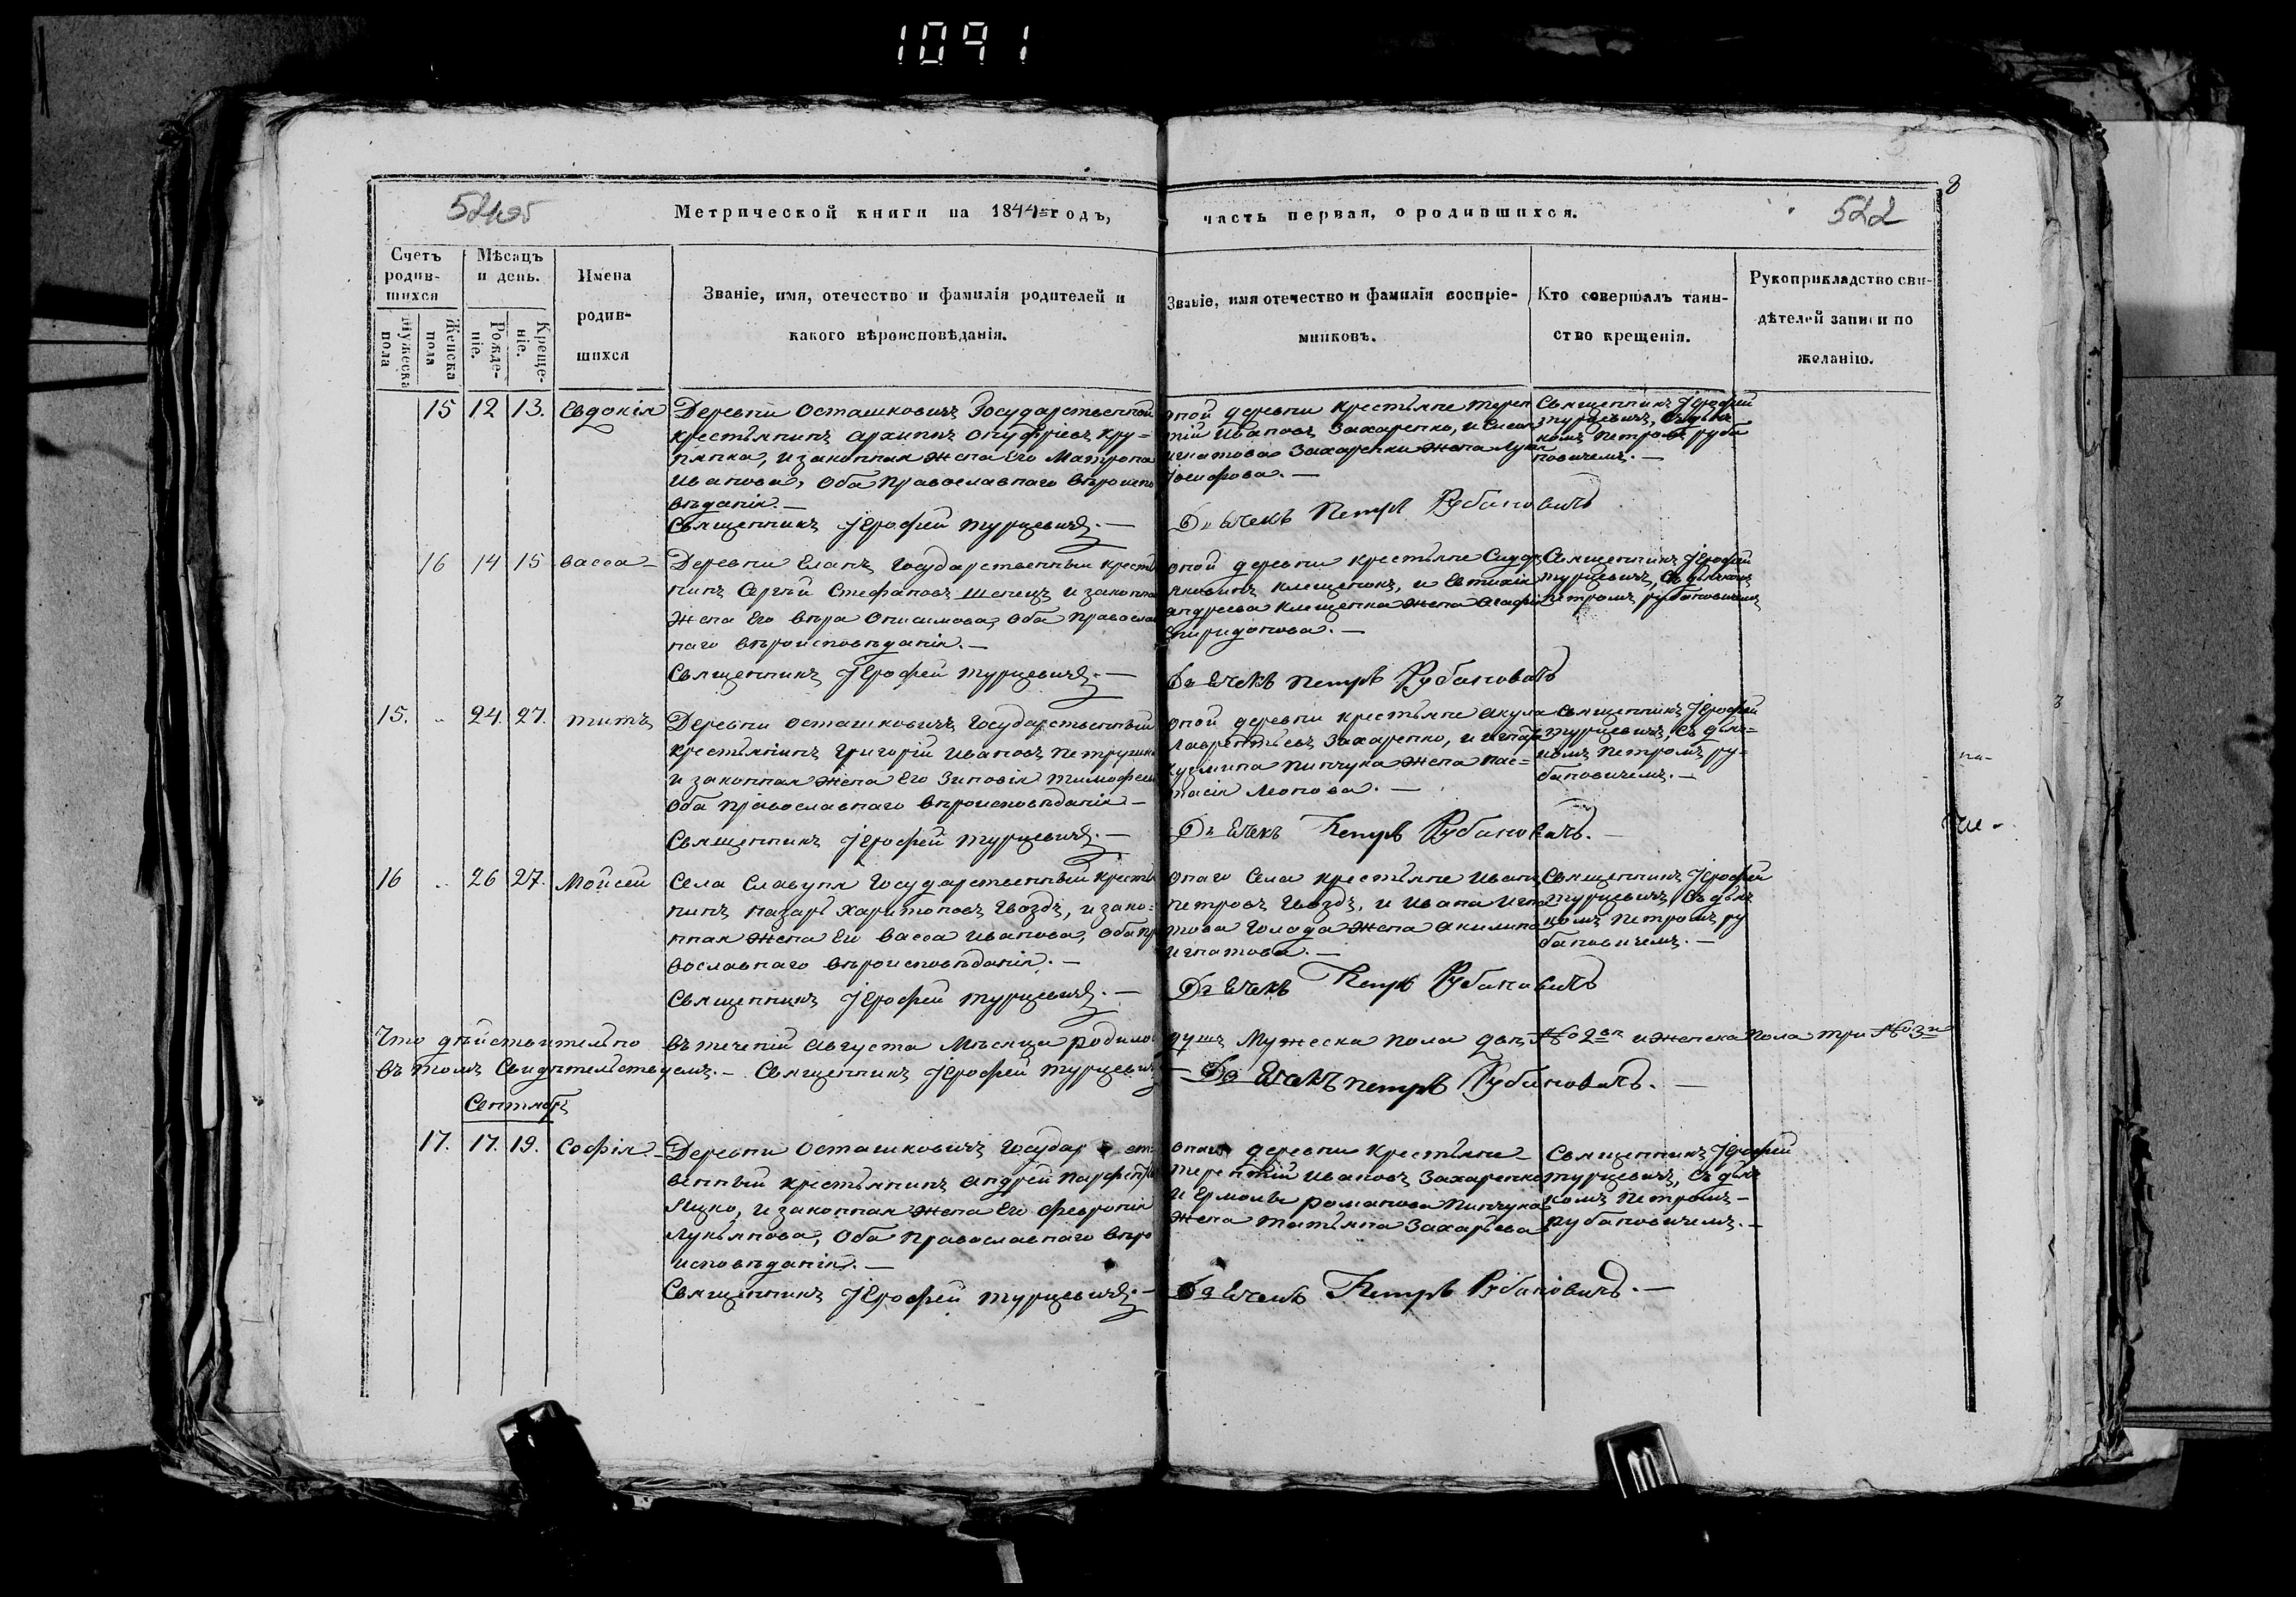 1091
8
52495
Метрической книги на 1844 годъ,
часть первая, о родившихся.
522
Счетъ родив-шихся
Мѣсацъ и день.
Имена родив-шихся
Званіе, имя, отечество и фамилія родителей и какого вѣроисповѣданія.
Званіе, имя отечество и фамилія воспріе-мниковъ.
Кто совершалъ таин-ство крещенія.
Рукоприкладство сви-дѣтелей записи по желанію.
Мужеска пола
Женска пола
Рожде-ніе.
Креще-ніе.
15 12 13. Евдокія
Деревни Осташковичъ Государственной
крестьянинъ Архипъ Онуфріевъ
и законная жена Его Матрона
Иванова, Оба Православнаго вѣроиспо
вѣданія. —
Священникъ Іерофей Турцевичъ. —
оной деревни крестьяне Терен
тій Ивановъ Захаренко, и
Игнатова Захаренки жена
Іосифова. —
Дьячекъ Петръ Рубановичъ
Священникъ Іерофей
Турцевичъ, Съ дьяч
комъ Петромъ Руба
новичемъ. —
16 14 15 Васса —
Деревни Еланъ Государственный крестья
нинъ Сергѣй Стефановъ Шепецъ и законна
жена Его Вѣра Онисимова, Оба Правосла
наго вѣроисповѣданія. —
Священникъ Іерофей Турцевичъ. —
оной деревни крестьяне Сидор
Яковинъ Клещенокъ, и Евтихія
Андреева Клещенка жена Агафія
Спиридонова. —
Дьячекъ Петръ Рубановичъ
Священникъ Іерофей
Турцевичъ, Съ дьячкомъ
Петромъ Рубановичемъ
15. „ 24. 27. Титъ
Деревни Осташковичъ Государственный
крестьянинъ Григорій Ивановъ Петрушко
и законная жена Его Зиновія Тимофеев
Оба Православнаго вѣроисповѣданія —
Священникъ Іерофей Турцевичъ. —
оной деревни крестьяне Акула
Лаврентьевъ Захаренко, и
Кузмина Пинчука жена Нас=
тасія Леонова. —
Дьячекъ Петръ Рубановичъ. —
Священникъ Іерофей
Турцевичъ, Съ дьяч=
комъ Петромъ Ру=
бановичемъ. —
16 „ 26 27. Мойсей
Села Славуня Государственный кресть
нинъ Назаръ Харитоновъ Гвоздъ, и зако=
нная жена Его Васса Иванова, Оба Пр
вославнаго вѣроисповѣданія. —
Священникъ Іерофей Турцевичъ. —
онаго Села крестьяне Иванъ
Петровъ Гвоздъ, и Ивана Игна
това Голода жена Акилина
Игнатова. —
Дьячекъ Петръ Рубановичъ
Священникъ Іерофей
Турцевичъ, Съ дьяч
комъ Петромъ Ру
бановичемъ. —
Что дѣйствительно въ теченіи Августа Мѣсяца родило душъ Мужеска пола двѣ № 2 и женска пола три № 3
въ томъ Свидѣтельствуемъ. — Священникъ Іерофей Турцевичъ — Дьячекъ Петръ Рубановичъ. —
Сентябрь
17. 17. 19. Софія. —
Деревни Осташковичъ Государст
венный крестьянинъ Андрей
Яцко, и законная жена Его Февронія
Лукьянова, Оба Православнаго вѣро
исповѣданія. —
Священникъ Іерофей Турцевичъ. —
оная деревни Крестьяне
Терентій Ивановъ Захаренко
и Ермолы Романова Пинчука
жена Татьяна Захарьева
Дьячекъ Петръ Рубановичъ. —
Священникъ Іерофей
Турцевичъ, Съ дьяч
комъ Петромъ —
Рубановичемъ. —